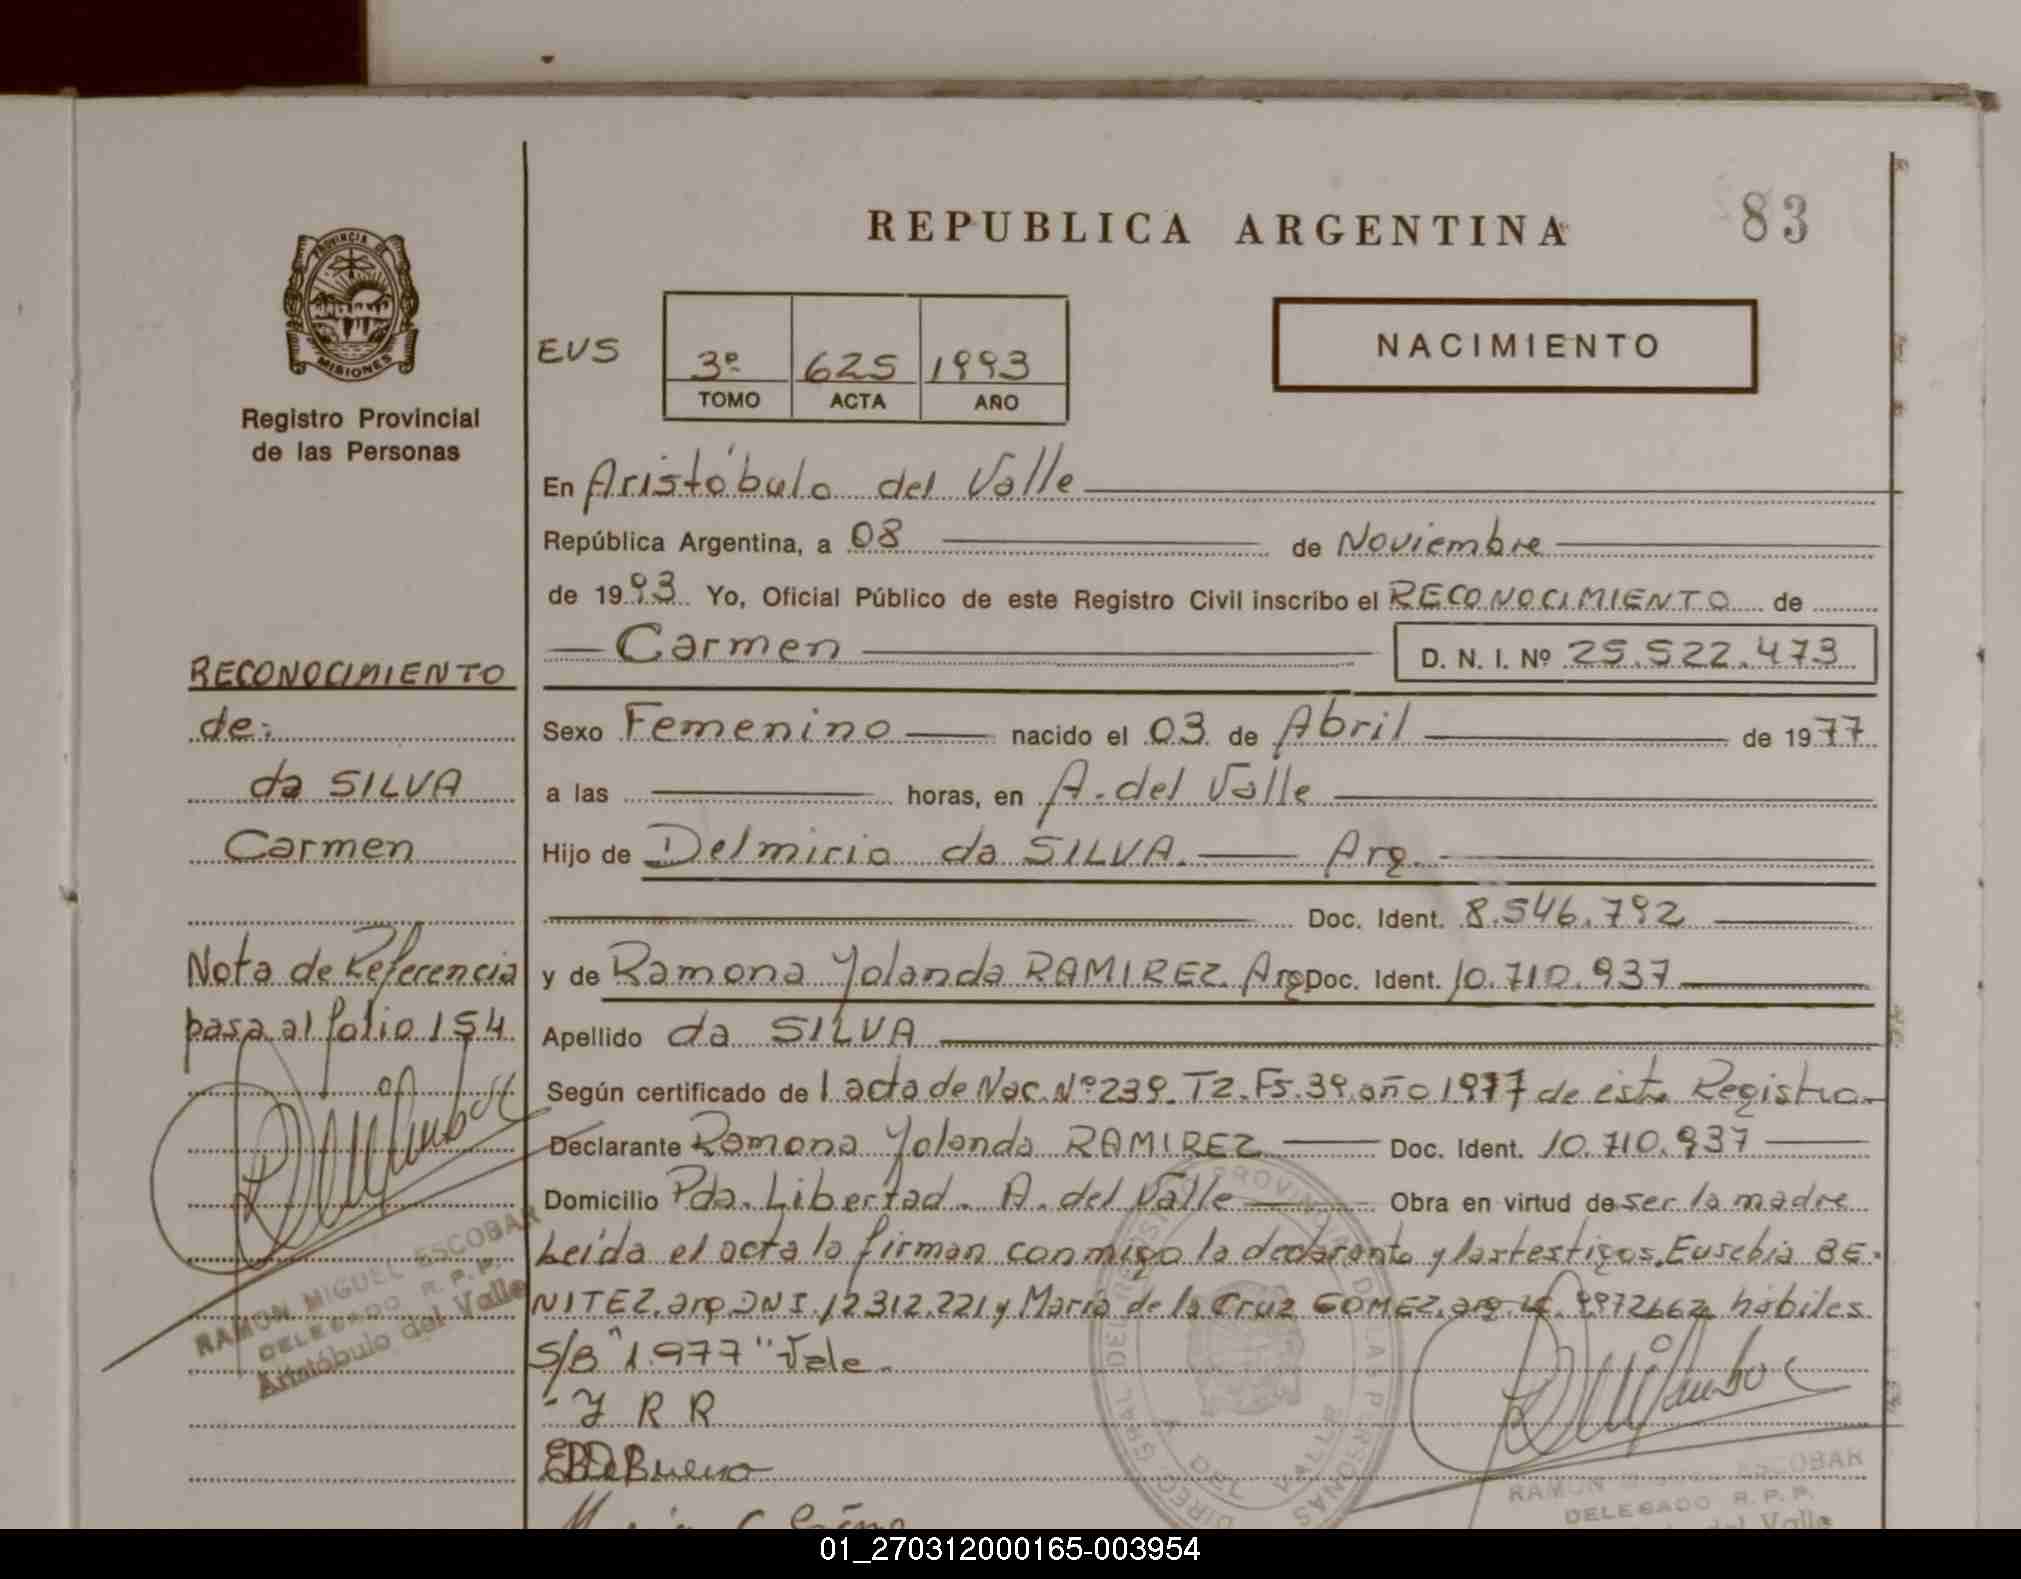 REPUBLICA ARGENTINA
83
PROVINCIA DE
MISIONES
Registro Provincial
de las Personas
EVS
3º 625 1993
TOMO ACTA AÑO
NACIMIENTO
En Aristóbulo del Valle
República Argentina, a 08 de Noviembre
de 1993 Yo, Oficial Público de este Registro Civil inscribo el RECONOCIMIENTO de
Carmen D. N. I. Nº 25.522.473
Sexo Femenino nacido el 03 de Abril de 1977
a las horas, en A. del Valle
Hijo de Delmirio da SILVA. Arg.
Doc. Ident. 8.546.792
y de Ramona Yolanda RAMIREZ. Arg Doc. Ident. 10.710.937
Apellido da SILVA
Según certificado de l acta de Nac. Nº 239. T2. Fs. 39. año 1977 de este Registro.
Declarante Ramona Yolanda RAMIREZ Doc. Ident. 10.710.937
Domicilio Pda. Libertad. A. del Valle Obra en virtud de ser la madre
Leída el acta la firman conmigo la declarante y los testigos. Eusebia BE-
NITEZ. arg. DNI. 12.312.221 y María de la Cruz GOMEZ. arg. LC. 9972662 hábiles
S/B "1.977" Vale.
- Y R R
EBDeBueno
RECONOCIMIENTO
de:
da SILVA
Carmen
Nota de Referencia
pasa al folio 154
RAMON MIGUEL ESCOBAR
DELEGADO R. P. P.
Aristóbulo del Valle
RAMON MIGUEL ESCOBAR
DELEGADO R. P. P.
del Valle
01_270312000165-003954